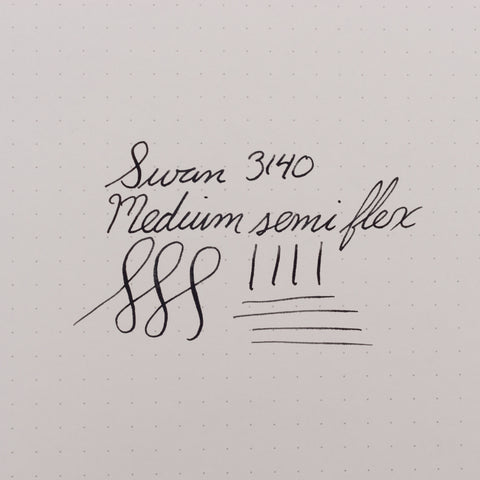 Swan 3140
Medium semi flex